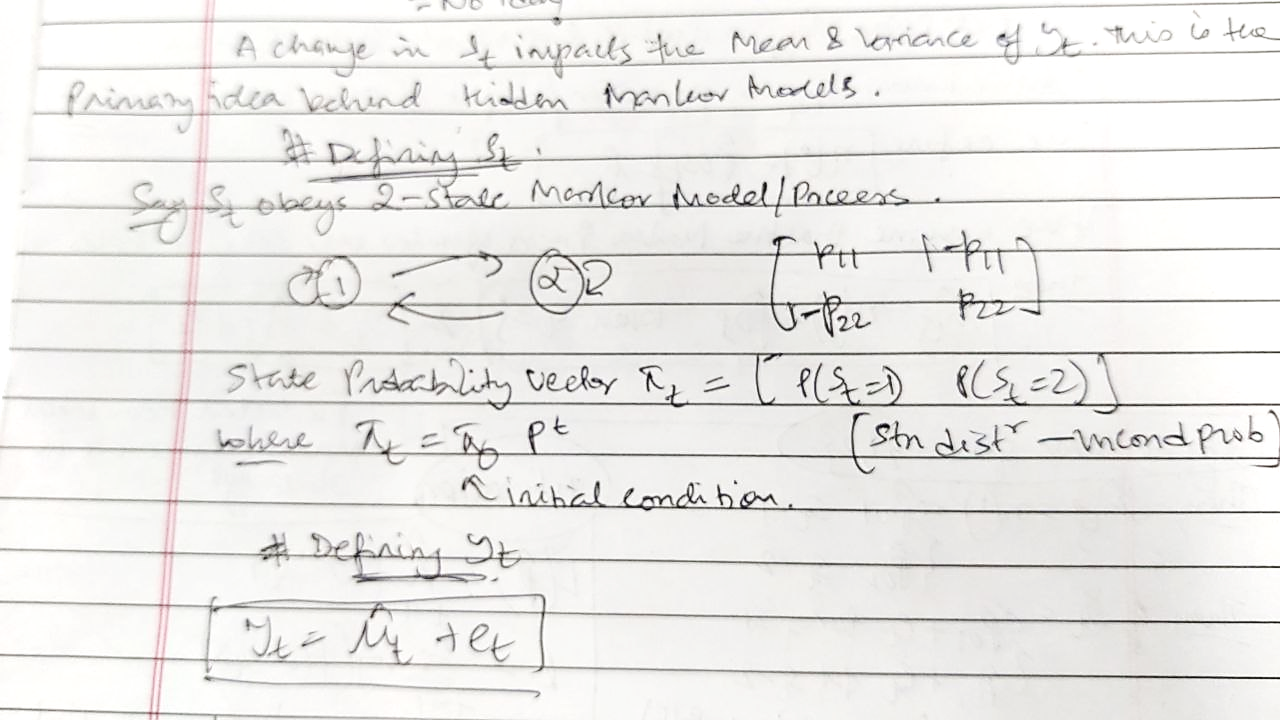 A change in St impacts the Mean & Variance of yt. This is the
Primary idea behind Hidden Markov Models.
# Defining St.
Say St obeys 2-State Markov Model/Process.
1 2 [ p11 1-p11
1-p22 p22 ]
State Probability vector πt = [ P(St=1) P(St=2) ]
where πt = π0 P^t [Stn distr – uncond prob]
↑ initial condition.
# Defining yt
yt = μ̂t + et